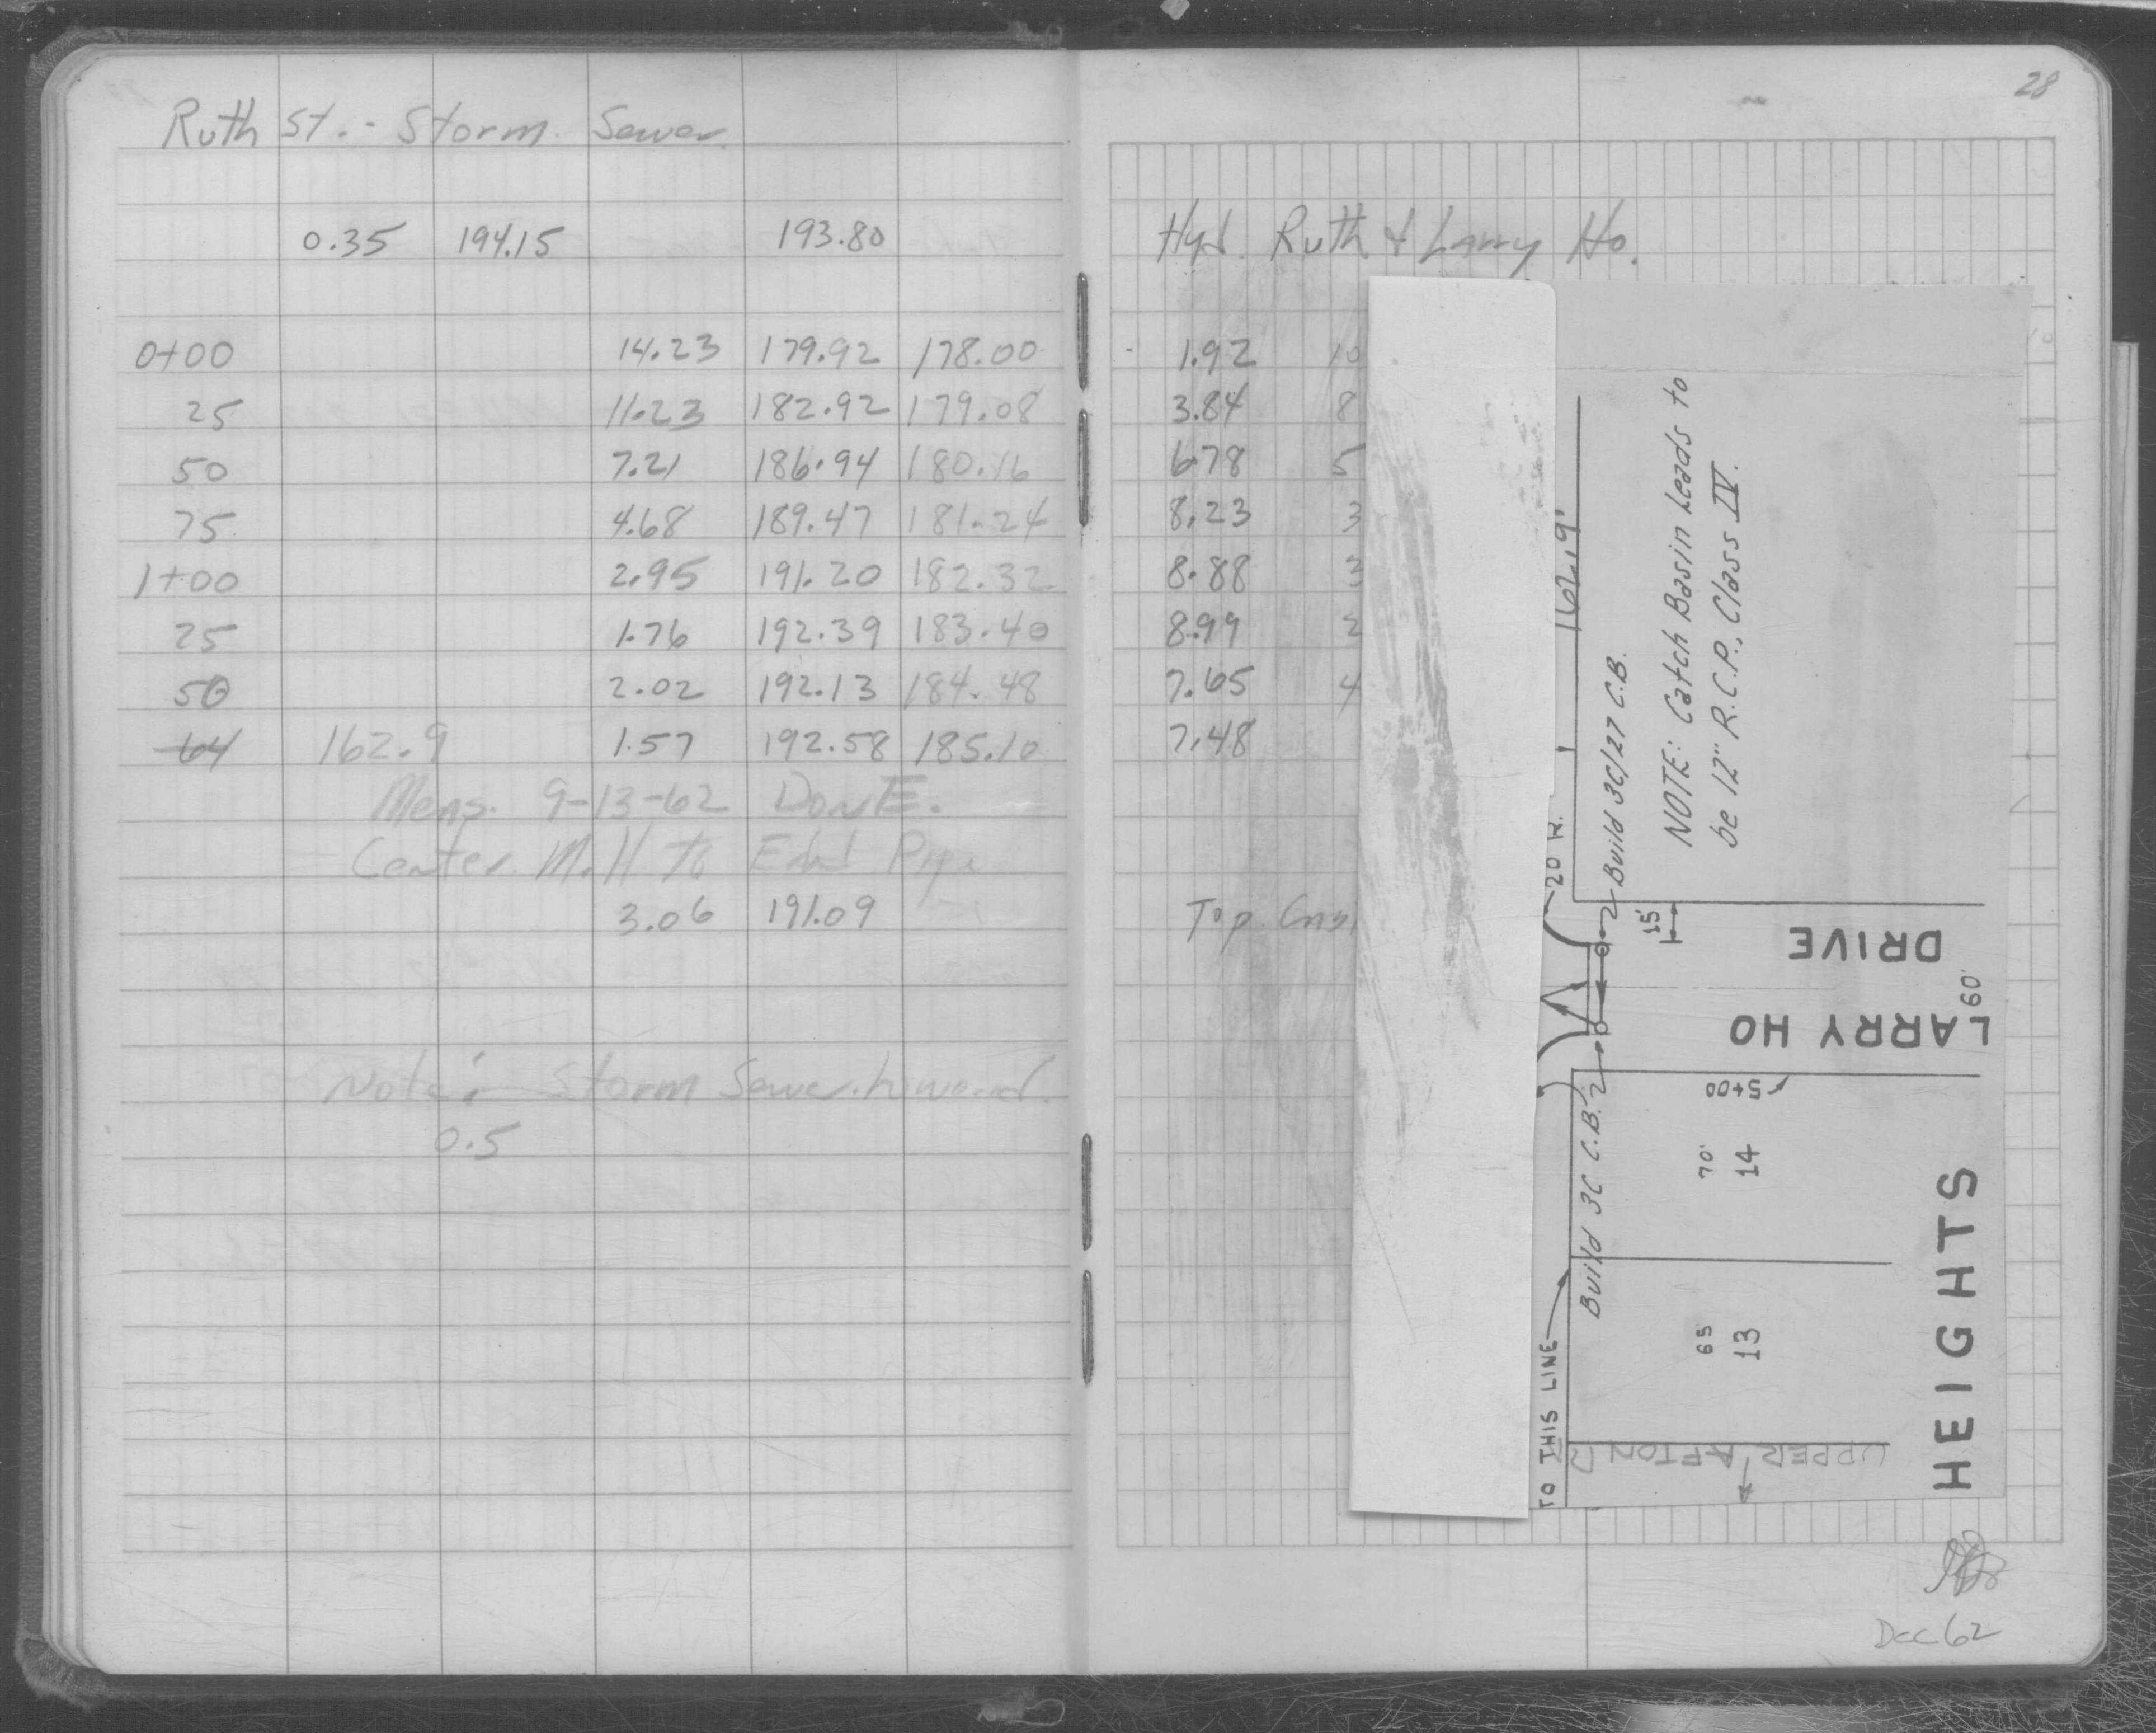 Ruth St. - Storm Sewer
0.35 194.15 193.80
0+00 14.23 179.92 178.00
25 11.23 182.92 179.08
50 7.21 186.94 180.16
75 4.68 189.47 181.24
1+00 2.95 191.20 182.32
25 1.76 192.39 183.40
50 2.02 192.13 184.48
64 162.9 1.57 192.58 185.10
Meas. 9-13-62 DONE.
Center M.H to End Pipe
3.06 191.09
Note: Storm Sewer
0.5
28
Hyd. Ruth & Larry Ho.
1.92 10
3.84 8
6.78 5
8.23 3
8.88 3
8.99 2
7.65 4
7.48
Top
162.9'
20 R.
Build 3C/27 C.B.
NOTE: Catch Basin Leads to
be 12" R.C.P., Class IV.
15'
LARRY HO
DRIVE
60'
Build 3C C.B.
5+00
70'
14
65
13
TO THIS LINE
UPPER AFTON
HEIGHTS
Dec 62